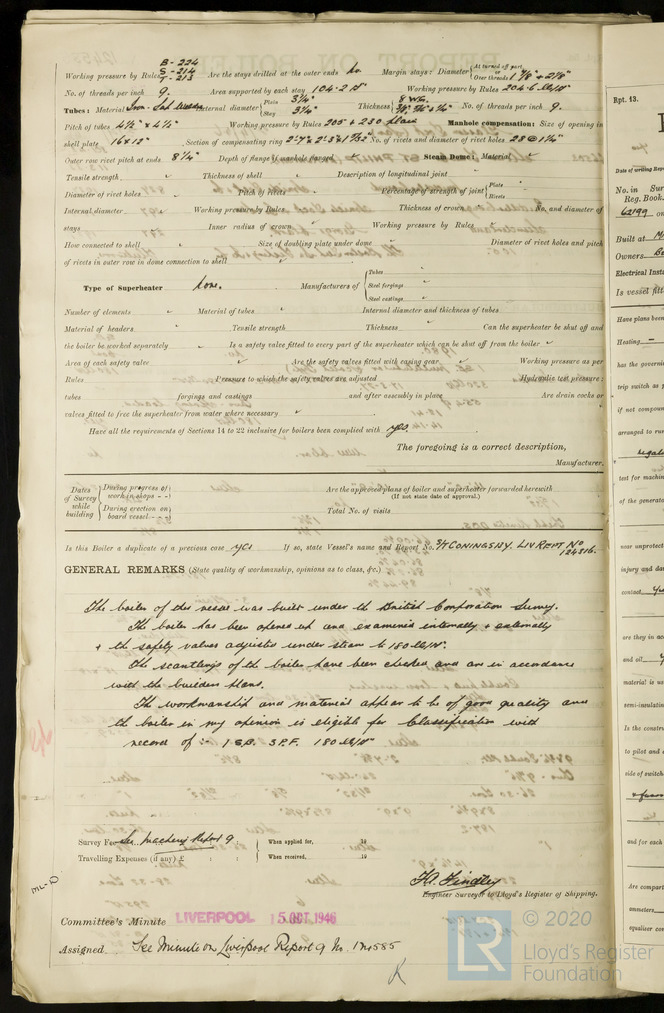 B - 224
S - 214
T - 213
Working pressure by Rules Are the stays drilled at the outer ends No. Margin stays: Diameter { At turned off part, or Over threads 1 7/8" + 2 1/8"
No. of threads per inch 9. Area supported by each stay 104.2 □" Working pressure by Rules 204.6 lb/□"
Tubes: Material Iron - Lap Welded External diameter { Plain 3 1/4" Stay 3 1/4" Thickness { 8 W.G. No. of threads per inch 9.
Pitch of tubes 4 1/2" x 4 1/2" Working pressure by Rules 205 + 230 Manhole compensation: Size of opening in
shell plate 16 x 12" Section of compensating ring No. of rivets and diameter of rivet holes 28 @ 1 1/4"
Outer row rivet pitch at ends 8 1/4" Depth of flange if manhole flanged Steam Dome: Material
Tensile strength Thickness of shell Description of longitudinal joint
Diameter of rivet holes Pitch of rivets Percentage of strength of joint { Plate Rivets
Internal diameter Working pressure by Rules Thickness of crown No. and diameter of
stays Inner radius of crown Working pressure by Rules
How connected to shell Size of doubling plate under dome Diameter of rivet holes and pitch
of rivets in outer row in dome connection to shell
Type of Superheater None. Manufacturers of { Tubes Steel forgings Steel castings
Number of elements Material of tubes Internal diameter and thickness of tubes
Material of headers Tensile strength Thickness Can the superheater be shut off and
the boiler be worked separately Is a safety valve fitted to every part of the superheater which can be shut off from the boiler
Area of each safety valve Are the safety valves fitted with easing gear Working pressure as per
Rules Pressure to which the safety valves are adjusted Hydraulic test pressure:
tubes forgings and castings and after assembly in place Are drain cocks or
valves fitted to free the superheater from water where necessary
Have all the requirements of Sections 14 to 22 inclusive for boilers been complied with Yes.
The foregoing is a correct description,
Manufacturer.
Dates of Survey while building { During progress of work in shops - - During erection on board vessel - - -
Are the approved plans of boiler and superheater forwarded herewith
(If not state date of approval.)
Total No. of visits
Is this Boiler a duplicate of a previous case Yes If so, state Vessel's name and Report No. S/T CONINGSBY. LIV REPT No 124816.
GENERAL REMARKS (State quality of workmanship, opinions as to class, &c.)
The boiler of this vessel was built under the British Corporation Survey.
The boiler has been opened up and examined internally & externally
& the safety valves adjusted under steam to 180 lb/□".
The scantlings of the boiler have been checked and are in accordance
with the builders plans.
The workmanship and materials appear to be of good quality and
the boiler in my opinion is eligible for Classification with
record of :- 1 S.B. 3 P.F. 180 lb/□"
Survey Fee See Machinery Report 9 When applied for, 19
Travelling Expenses (if any) £ : : When received, 19
Findley
Engineer Surveyor to Lloyd's Register of Shipping.
Committee's Minute LIVERPOOL 15 OCT 1946
Assigned See Minute on Liverpool Report 9 No.
© 2020
LR
Lloyd's Register
Foundation
Rpt. 13.
Date of writing Rep
No. in Sur
Reg. Book.
62199 on
Built at
Owners
Electrical Insta
Is vessel fitt
Have plans been
Heating —
has the governi
trip switch as p
if not compoun
arranged to run
test for machin
of the generato
near unprotect
injury and dan
contact
are they in ac
and oil
material is w
semi-insulatin
Is the constru
to pilot and e
side of switch
and for each
Are compart
ammeters
equaliser con